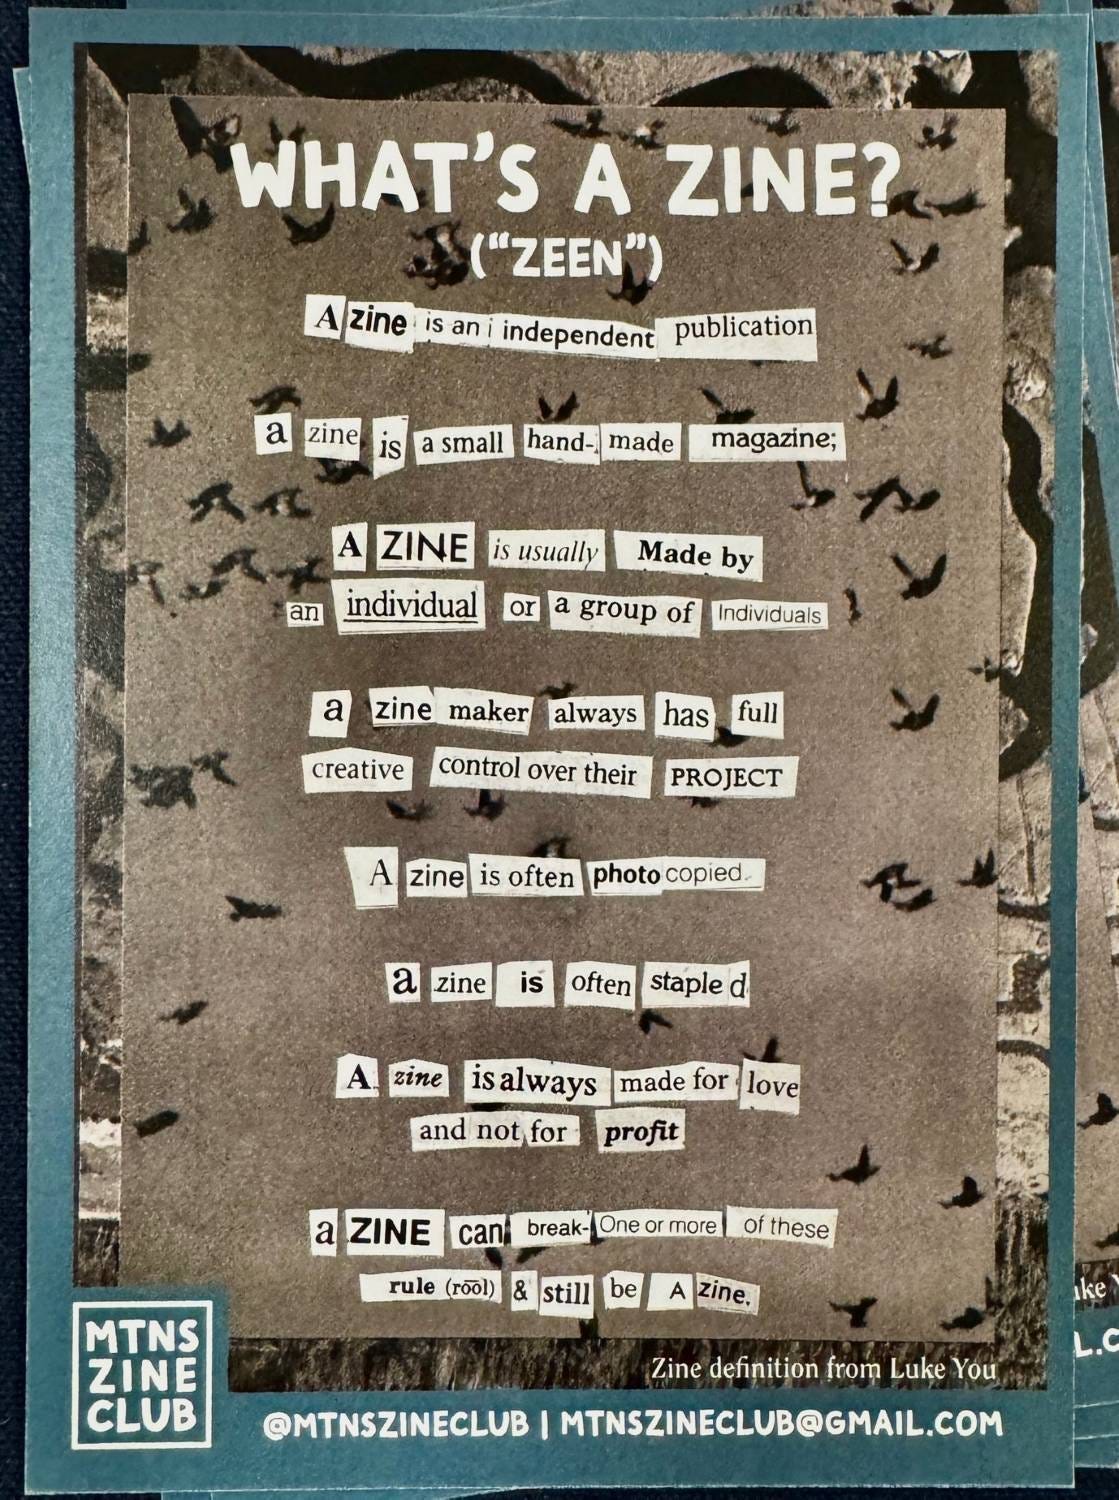 WHAT'S A ZINE?
("ZEEN")
A zine is an i independent publication
a zine is a small hand- made magazine;
A ZINE is usually Made by
an individual or a group of Individuals
a zine maker always has full
creative control over their PROJECT
A zine is often photocopied.
a zine is often stapled
A zine is always made for love
and not for profit
a ZINE can break- One or more of these
rule (rōōl) & still be A zine.
Zine definition from Luke You
MTNS
ZINE
CLUB
@MTNSZINECLUB | MTNSZINECLUB@GMAIL.COM